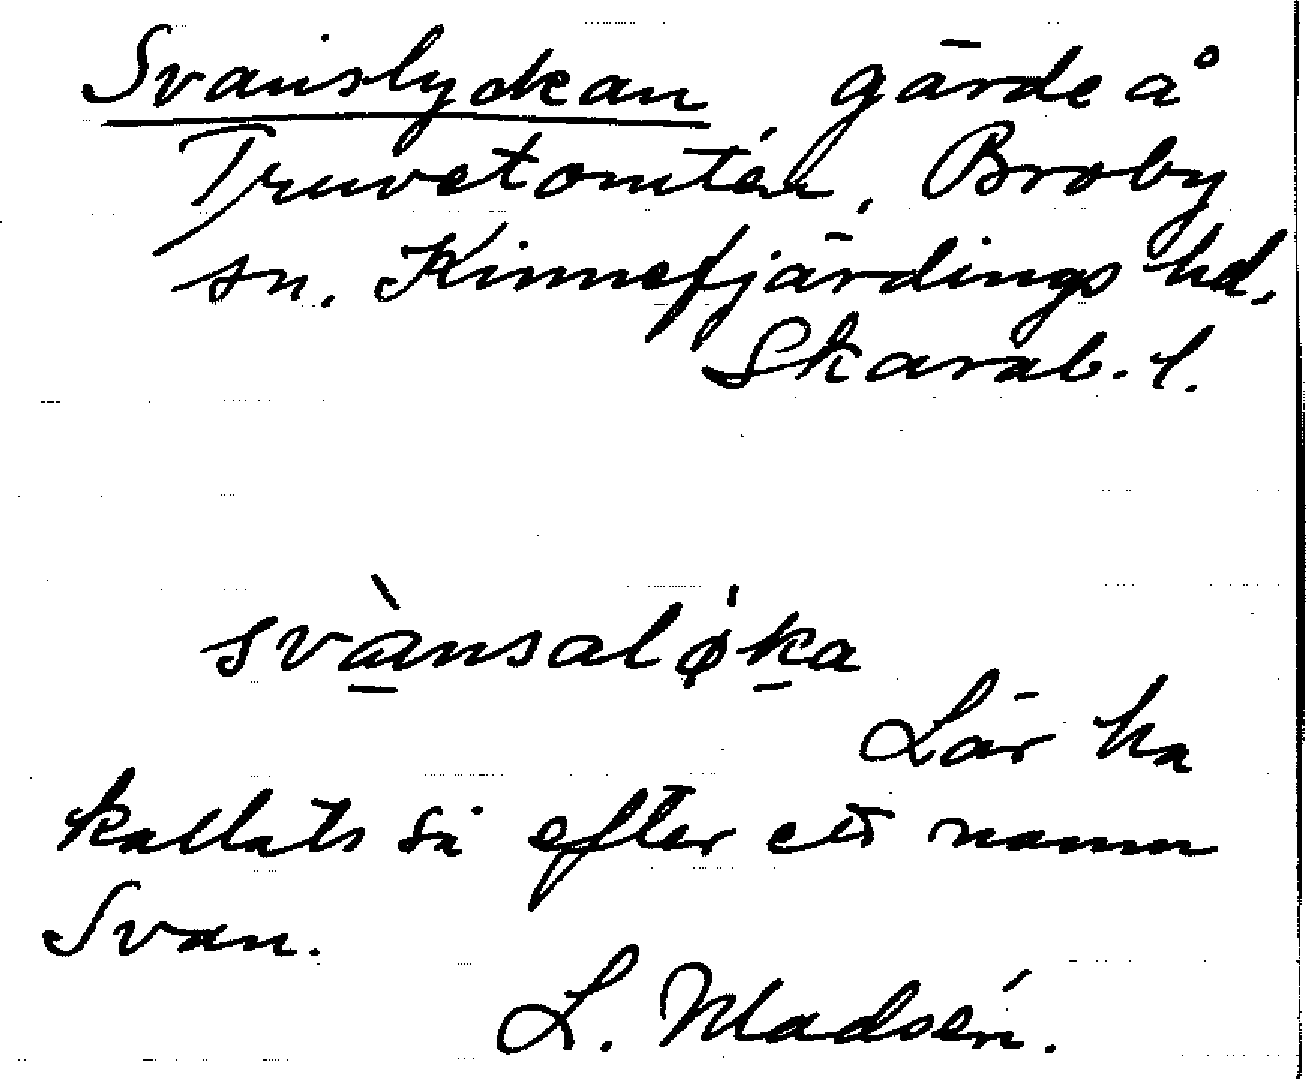 Svanslyckan gärde å
Truvetomtén, Broby
sn. Kinnefjärdings hd.
Skarab. l.
svànsalø̍ka
Lär ha
kallats så efter ett namn
Svan.
L. Madsén.